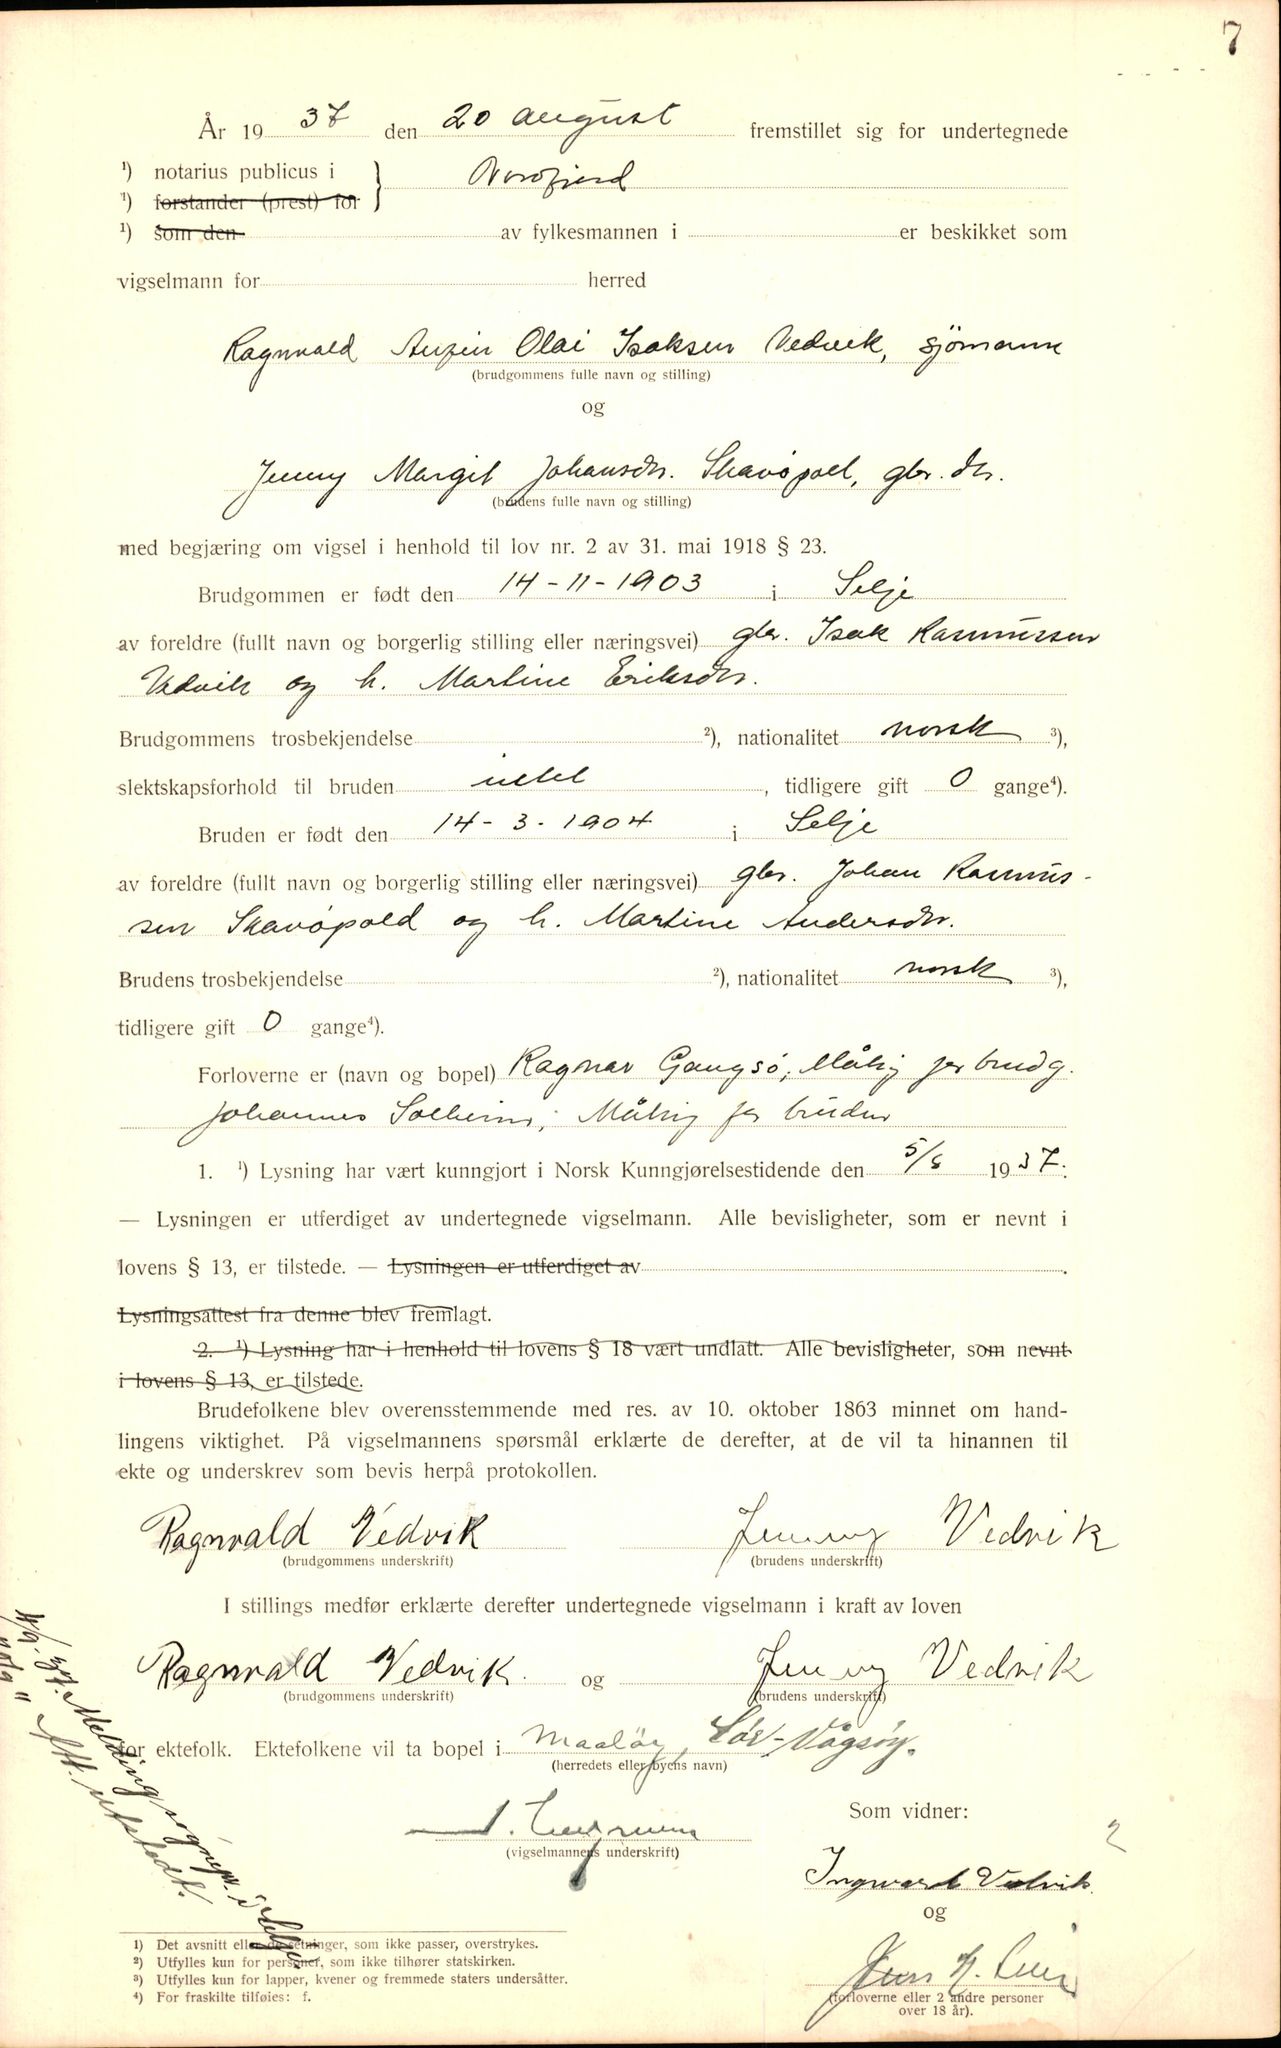 7
År 19 37 den 20 august fremstillet sig for undertegnede
¹) notarius publicus i } Nordfjord
¹) forstander (prest) for
¹) som den av fylkesmannen i er beskikket som
vigselmann for herred
Ragnvald Olai Isaksen Vedvik, sjömann
(brudgommens fulle navn og stilling)
og
Jenny Margit Johansdtr. Skavöpoll, gbr. dtr.
(brudens fulle navn og stilling)
med begjæring om vigsel i henhold til lov nr. 2 av 31. mai 1918 § 23.
Brudgommen er født den 14-11-1903 i Selje
av foreldre (fullt navn og borgerlig stilling eller næringsvei) gbr. Isak Rasmussen
Vedvik og h. Martine Eriksdtr.
Brudgommens trosbekjendelse ²), nationalitet norsk ³),
slektskapsforhold til bruden intet, tidligere gift 0 gange⁴).
Bruden er født den 14-3-1904 i Selje
av foreldre (fullt navn og borgerlig stilling eller næringsvei) gbr. Johan Rasmus-
sen Skavöpold og h. Martine Andersdtr.
Brudens trosbekjendelse ²), nationalitet norsk ³),
tidligere gift 0 gange⁴).
Forloverne er (navn og bopel) Ragnar Gangsö, Målöy for brudg.
Johannes Solheim, Målöy for bruden
1. ¹) Lysning har vært kunngjort i Norsk Kunngjørelsestidende den 5/8 1937.
— Lysningen er utferdiget av undertegnede vigselmann. Alle bevisligheter, som er nevnt i
lovens § 13, er tilstede. — Lysningen er utferdiget av .
Lysningsattest fra denne blev fremlagt.
2. ¹) Lysning har i henhold til lovens § 18 vært undlatt. Alle bevisligheter, som nevnt
i lovens § 13, er tilstede.
Brudefolkene blev overensstemmende med res. av 10. oktober 1863 minnet om hand-
lingens viktighet. På vigselmannens spørsmål erklærte de derefter, at de vil ta hinannen til
ekte og underskrev som bevis herpå protokollen.
Ragnvald Vedvik Jenny Vedvik
(brudgommens underskrift) (brudens underskrift)
I stillings medfør erklærte derefter undertegnede vigselmann i kraft av loven
Ragnvald Vedvik og Jenny Vedvik
(brudgommens underskrift) (brudens underskrift)
for ektefolk. Ektefolkene vil ta bopel i Maalöy, Sör-Vågsöy.
(herredets eller byens navn)
Som vidner:
(vigselmannens underskrift)
Ingvard Vedvik
og
(forloverne eller 2 andre personer
over 18 år).
4/9. 37. Melding sognepr. i Selje
Att. utstedt.
1) Det avsnitt eller de setninger, som ikke passer, overstrykes.
2) Utfylles kun for personer, som ikke tilhører statskirken.
3) Utfylles kun for lapper, kvener og fremmede staters undersåtter.
4) For fraskilte tilføies: f.